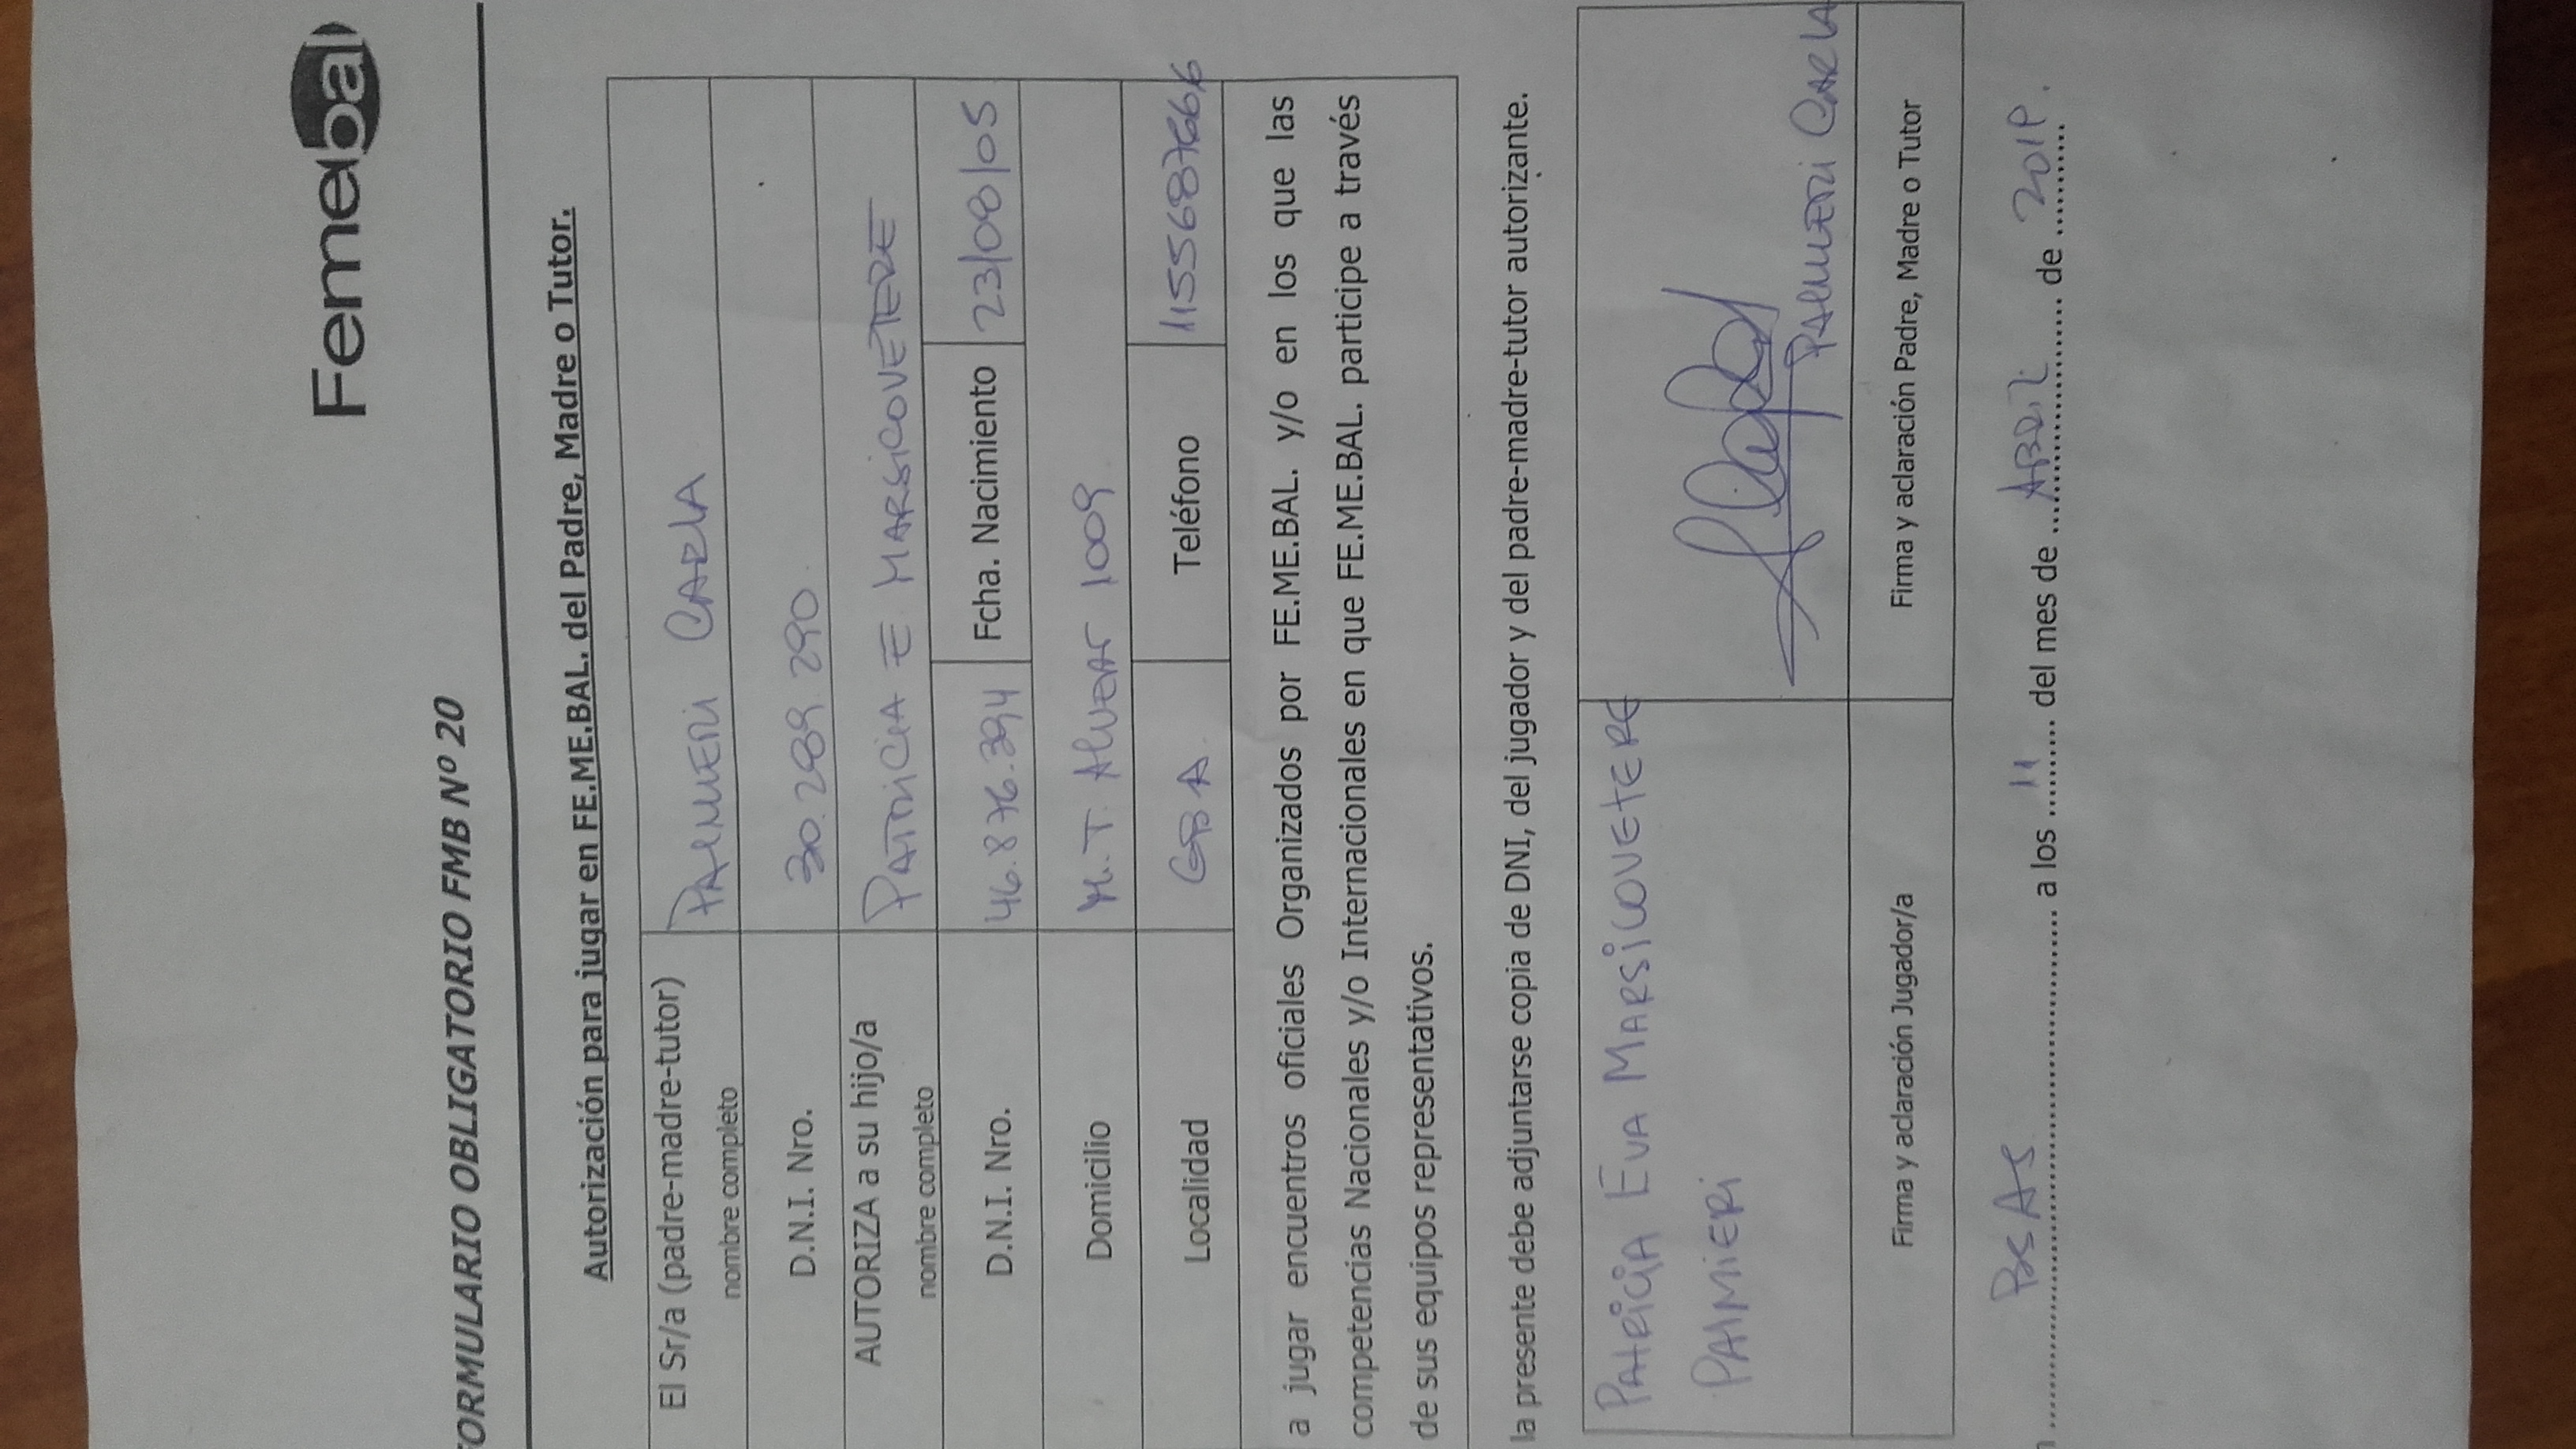 Femebal
FORMULARIO OBLIGATORIO FMB Nº 20
Autorización para jugar en FE.ME.BAL. del Padre, Madre o Tutor.
El Sr/a (padre-madre-tutor) PALMIERI CARLA
nombre completo
D.N.I. Nro. 30.289.290
AUTORIZA a su hijo/a PATRICIA E MARSICOVETERE
nombre completo
D.N.I. Nro. 46.876.394 Fcha. Nacimiento 23/08/05
Domicilio M. T. Alvear 1009
Localidad GBA Teléfono 1155687666
a jugar encuentros oficiales Organizados por FE.ME.BAL. y/o en los que las
competencias Nacionales y/o Internacionales en que FE.ME.BAL. participe a través
de sus equipos representativos.
la presente debe adjuntarse copia de DNI, del jugador y del padre-madre-tutor autorizante.
PATRICIA EVA MARSICOVETERE
PALMIERI
PALMIERI CARLA
Firma y aclaración Jugador/a Firma y aclaración Padre, Madre o Tutor
BS AS a los 11 del mes de ABRIL de